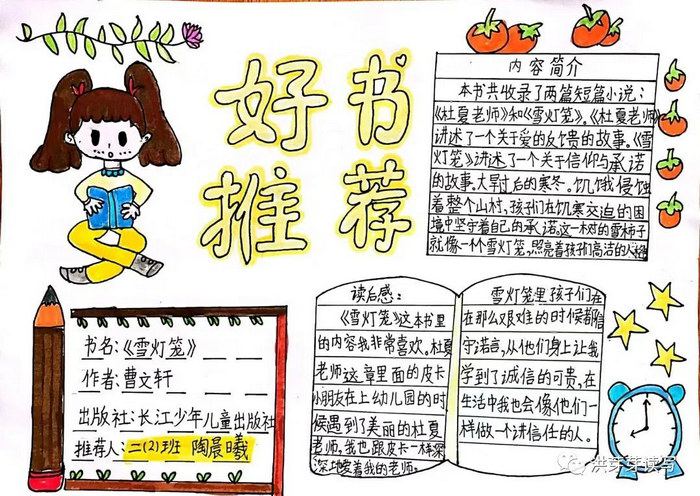 好书
推荐
内容简介
本书共收录了两篇短篇小说：
《杜夏老师》和《雪灯笼》。《杜夏老师》
讲述了一个关于爱的反馈的故事。《雪
灯笼》讲述了一个关于信仰与承诺
的故事。大旱过后的寒冬。饥饿侵蚀
着整个山村，孩子们在饥寒交迫的困
境中坚守着自己的承诺。这一树的雪柿子
就像一个雪灯笼，照亮着孩子们高洁的人格
书名：《雪灯笼》
作者：曹文轩
出版社：长江少年儿童出版社
推荐人：二(2)班 陶晨曦
读后感：
《雪灯笼》这本书里
的内容我非常喜欢。杜夏
老师这章里面的皮卡
小朋友在上幼儿园的时
候遇到了美丽的杜夏
老师。我也跟皮卡一样深
深地爱着我的老师。
雪灯笼里孩子们在
在那么艰难的时候都信
守诺言，从他们身上让我
学到了诚信的可贵，在
生活中我也会像他们一
样做一个讲信任的人。
洪芽芽读写